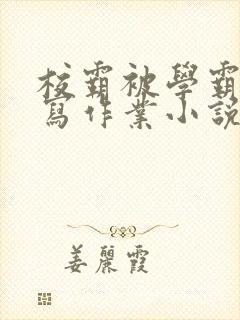 校霸被學霸
寫作業小說
姜麗霞